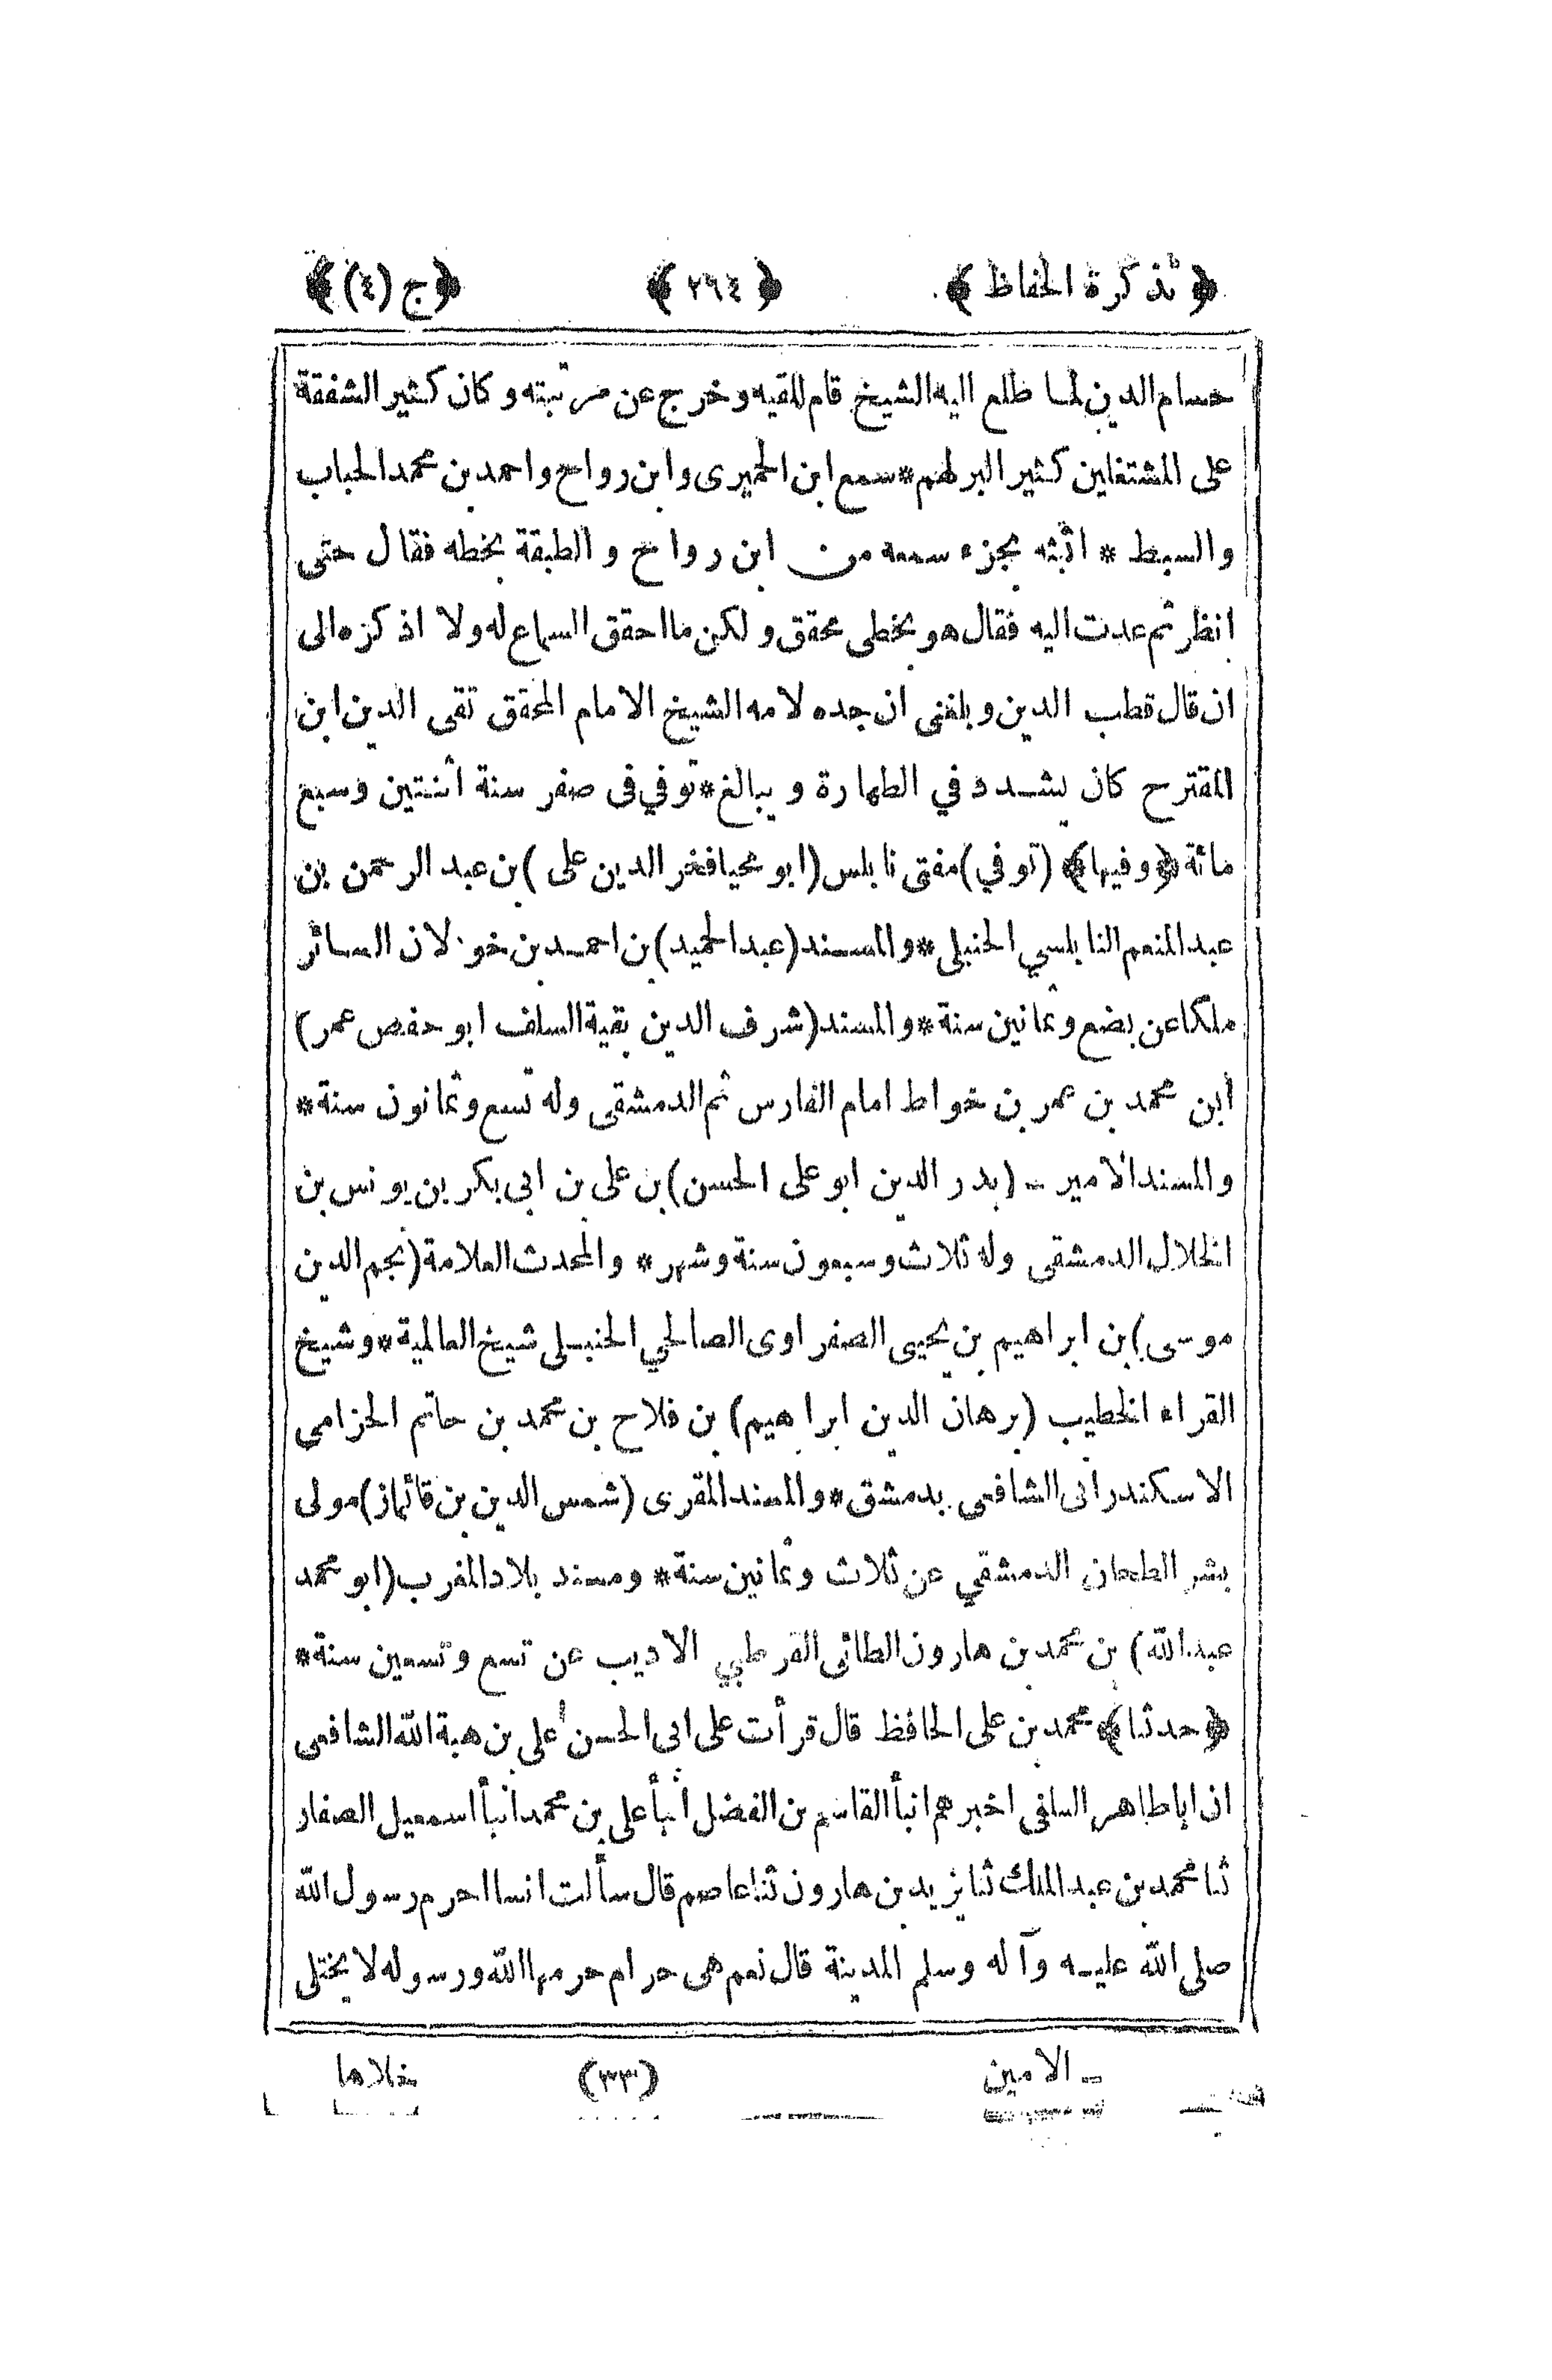 ﴿ تذكرة الحفاظ ﴾ ﴿ ٢٦٤ ﴾ ﴿ ج (٤) ﴾
حسام الدين لما طلع اليه الشيخ قام للقيه وخرج عن مرتبته وكان كثير الشفقة
على المشتغلين كثير البر لهم * سمع ابن الجميزى وابن رواح واحمد بن محمد الحباب
والسبط * اتبته بجزء سمعه من ابن رواح والطبقة بخطه فقال حتى
انظر ثم عدت اليه فقال هو بخطى محقق ولكن ما احقق السماع له ولا اذكره الى
ان قال قطب الدين وبلغنى ان جده لامه الشيخ الامام المحقق تقى الدين ابن
المقترح كان يشدد في الطهارة ويبالغ * توفي فى صفر سنة اثنتين وسبع
مائة ﴿ وفيها ﴾ (توفي) مفتى نابلس (ابو محيا فخر الدين على) بن عبد الرحمن بن
عبد المنعم النابلسي الحنبلى * والمسند (عبد الحميد) بن احمد بن خولان السائر
ملكا عن بضع وثمانين سنة * والمسند (شرف الدين بقية السلف ابو حفص عمر)
ابن محمد بن عمر بن خواط امام الفارس ثم الدمشقى وله تسع وثمانون سنة *
والمسند الامير - (بدر الدين ابو على الحسن) بن على بن ابى بكر بن يونس بن
الخلال الدمشقى وله ثلاث وسبعون سنة وشهر * والمحدث العلامة (نجم الدين
موسى) بن ابراهيم بن يحيى الصفراوى الصالحي الحنبلى شيخ العالمية * وشيخ
القراء الخطيب (برهان الدين ابراهيم) بن فلاح بن محمد بن حاتم الحزامى
الاسكندرانى الشافعى بدمشق * والمسند المقرى (شمس الدين بن قائماز) مولى
بشر الطحان الدمشقي عن ثلاث وثمانين سنة * ومسند بلاد المغرب (ابو محمد
عبد الله) بن محمد بن هارون الطائى القرطبي الاديب عن تسع وتسعين سنة *
﴿ حدثنا ﴾ محمد بن على الحافظ قال قرأت على ابى الحسن على بن هبة الله الشافعى
ان اباطاهر السلفى اخبرهم انبأ القاسم بن الفضل أنبأ على بن محمد انبأ اسمعيل الصفار
ثنا محمد بن عبد الملك ثنا يزيد بن هارون ثنا عاصم قال سألت انسا احرم رسول الله
صلى الله عليه وآله وسلم المدينة قال نعم هى حرام حرمها الله ورسوله لا يختلى
- الامين (٣٣) خلاها